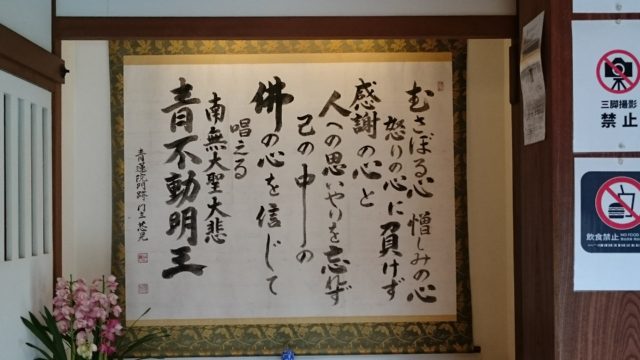 むさぼる心 憎しみの心
怒りの心に負けず
感謝の心と
人への思いやりを忘れず
己の中の
佛の心を信じて
唱える
南無大聖大悲
青不動明王
青蓮院門跡
三脚撮影
禁止
飲食禁止
NO FOOD